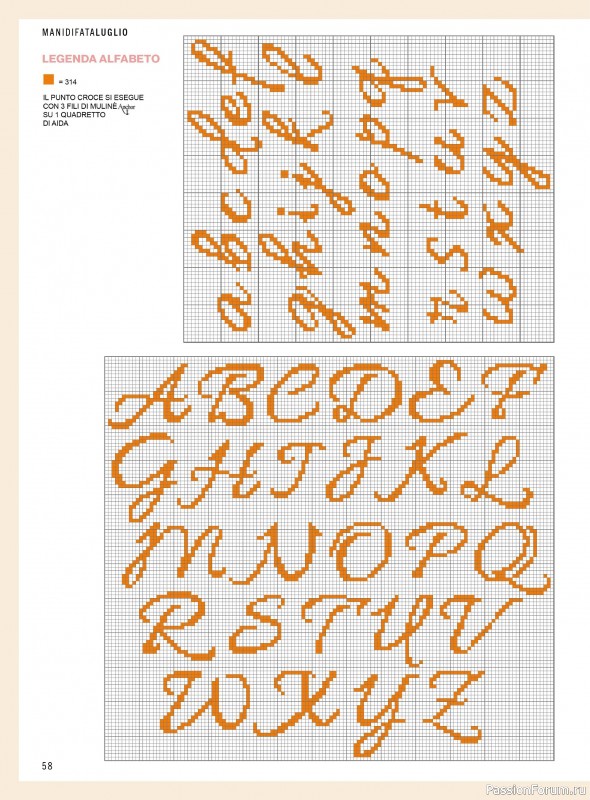 MANIDIFATALUGLIO
LEGENDA ALFABETO
= 314
IL PUNTO CROCE SI ESEGUE
CON 3 FILI DI MULINÉ Anchor
SU 1 QUADRETTO
DI AIDA
a b c d e f
g h i j k l
m n o p q
r s t u v
w x y z
A B C D E F
G H I J K L
M N O P Q
R S T U V
W X Y Z
58
PassionForum.ru